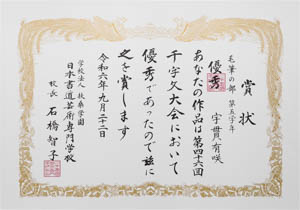 賞状
毛筆の部 第五学年
宇貫 有咲
優秀
あなたの作品は第四十六回
千字文大会において
優秀であったので茲に
之を賞します
令和六年九月二十二日
学校法人 扶桑学園
日本書道芸術専門学校
校長 石橋智子